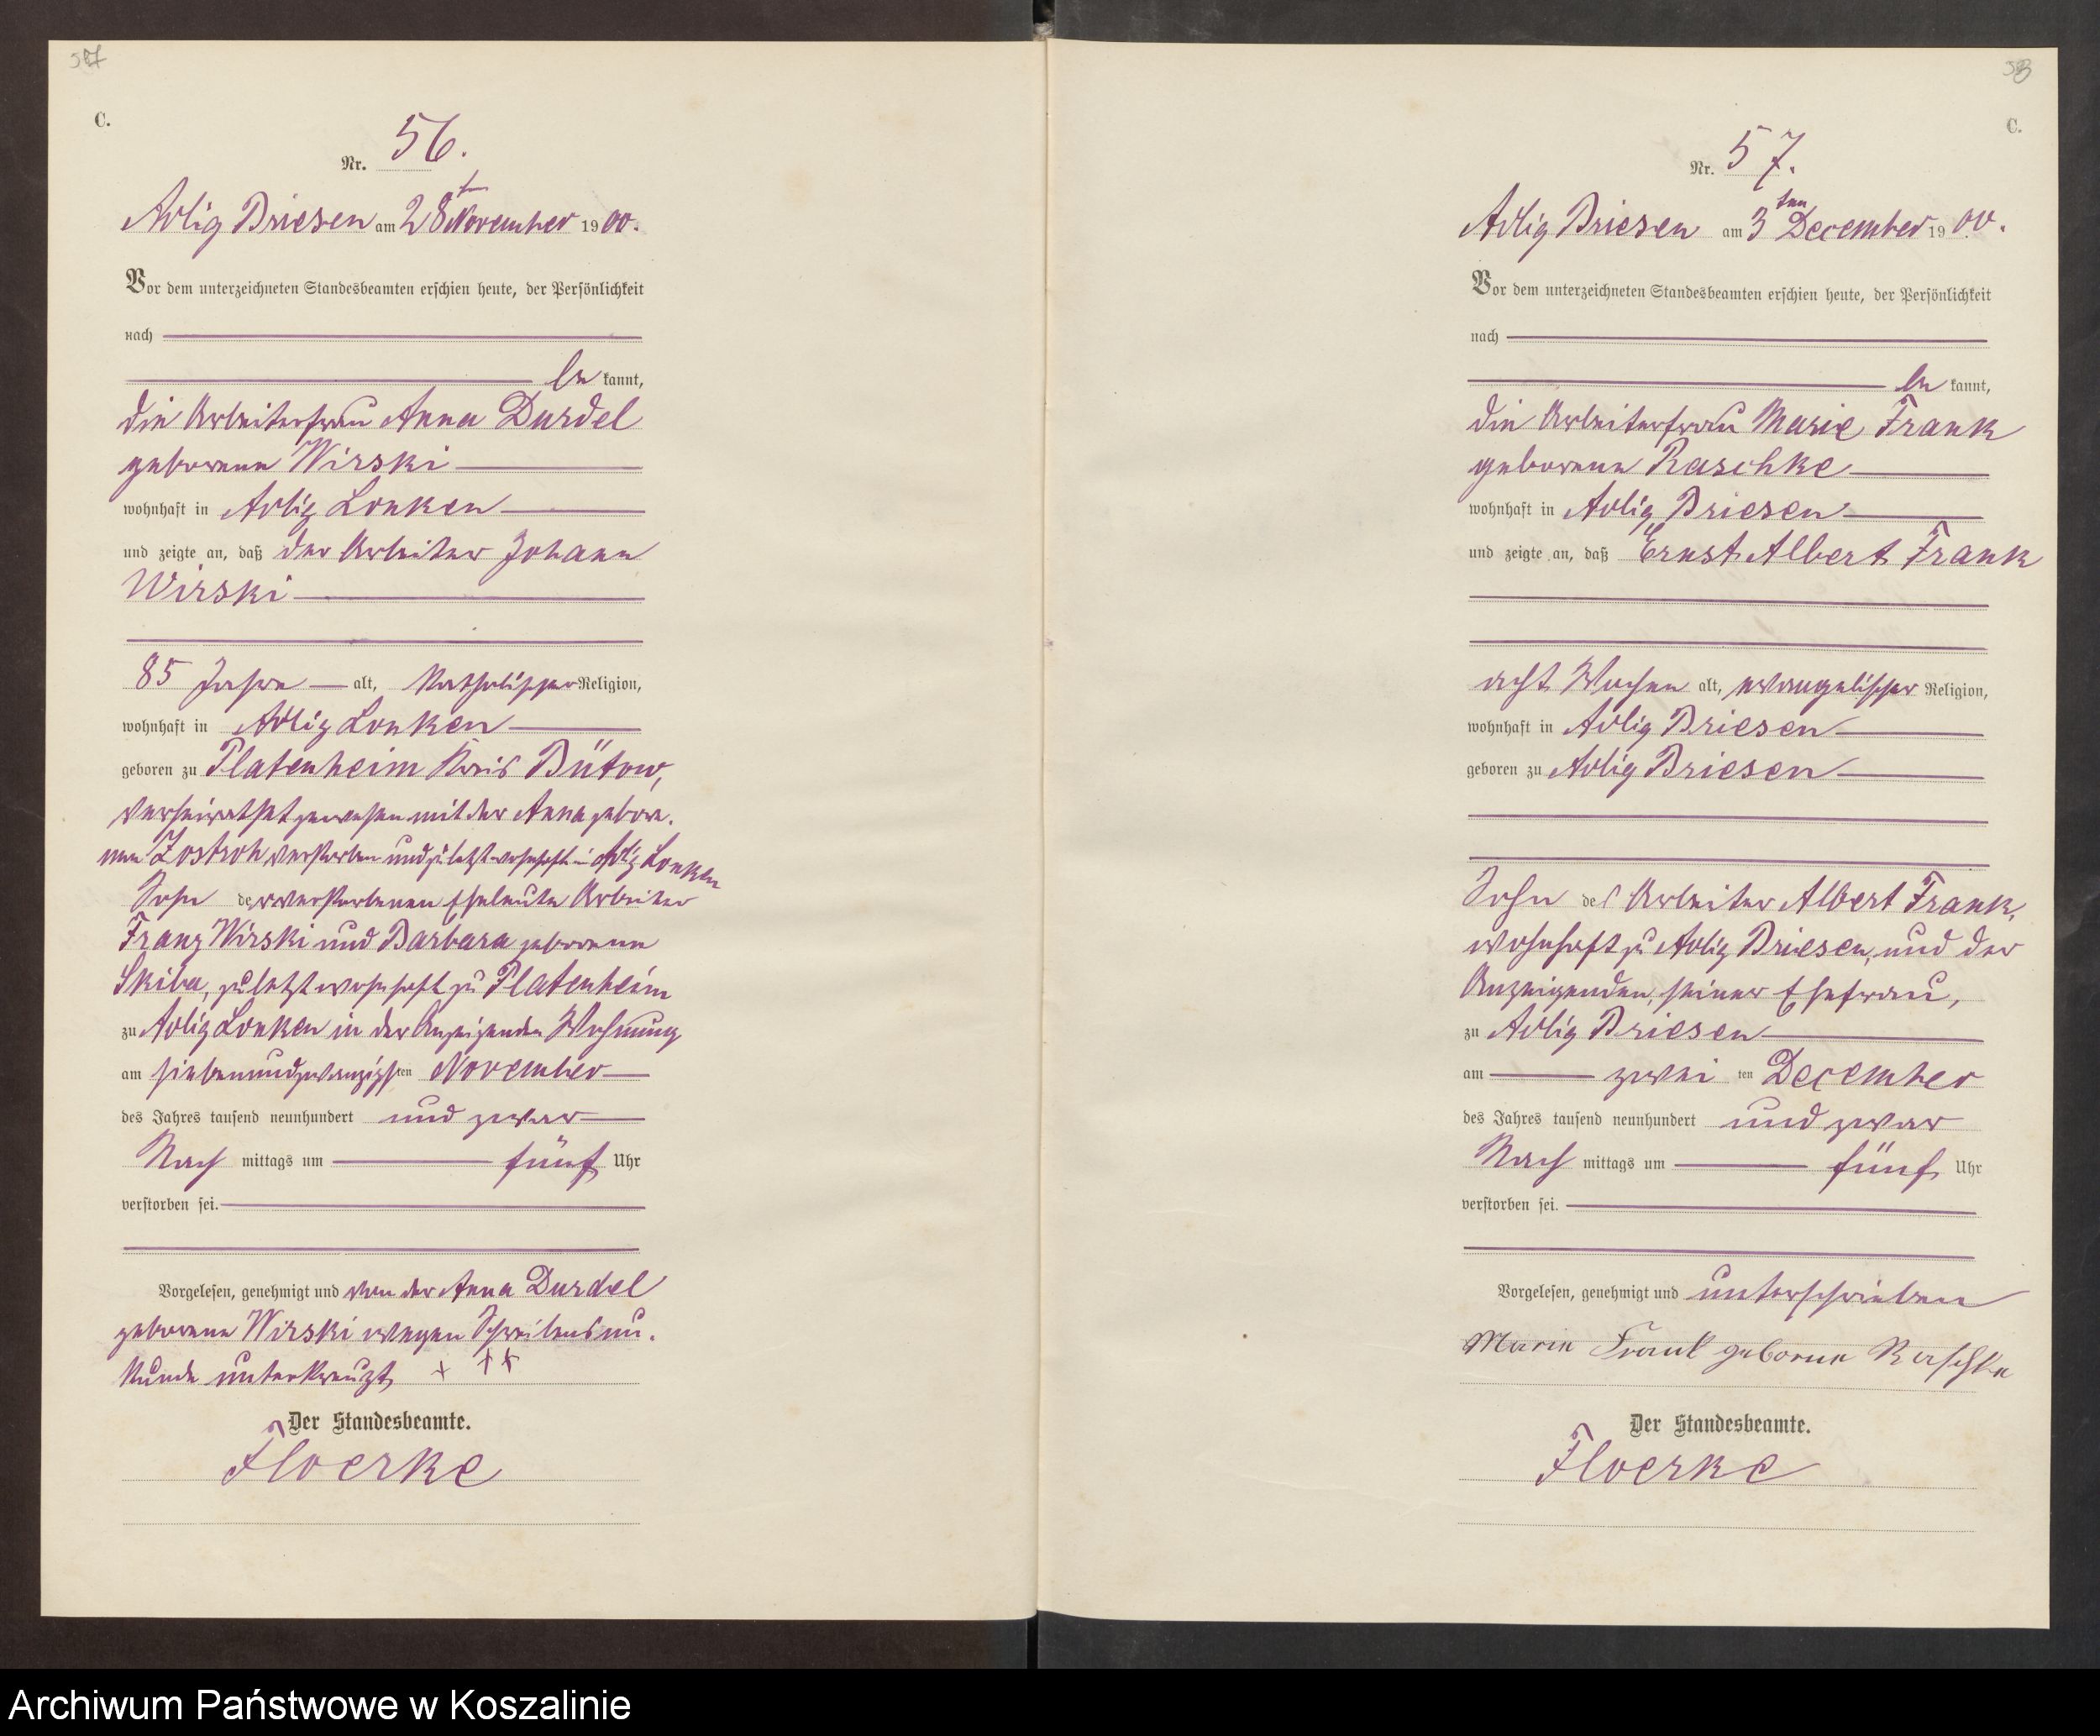 C.
Nr. 56.
Adlig Briesen am 28ten November 1900.
Vor dem unterzeichneten Standesbeamten erschien heute, der Persönlichkeit
nach
be kannt,
die Arbeiterfrau Anna Durdel
geborene Wirski
wohnhaft in Adlig Lonken
und zeigte an, daß der Arbeiter Johann
Wirski
85 Jahre alt, katholischer Religion,
wohnhaft in Adlig Lonken
geboren zu Platenheim Kreis Bütow,
verheirathet gewesen mit der Anna gebore-
nen Zostroh verstorben und zuletzt wohnhaft in Adlig Lonken
Sohn der verstorbenen Eheleute Arbeiter
Franz Wirski und Barbara geborene
Skiba, zuletzt wohnhaft zu Platenheim
zu Adlig Lonken in der Anzeigenden Wohnung
am siebenundzwanzigsten November
des Jahres tausend neunhundert und zwar
Nach mittags um fünf Uhr
verstorben sei.
Vorgelesen, genehmigt und von der Anna Durdel
geborene Wirski wegen Schreibensun-
kunde unterkreuzt + ++
Der Standesbeamte.
Floerke
58
C.
Nr. 57.
Adlig Briesen am 3ten December 1900.
Vor dem unterzeichneten Standesbeamten erschien heute, der Persönlichkeit
nach
be kannt,
die Arbeiterfrau Marie Frank
geborene Raschke
wohnhaft in Adlig Briesen
und zeigte an, daß Ernst Albert Frank
acht Wochen alt, evangelischer Religion,
wohnhaft in Adlig Briesen
geboren zu Adlig Briesen
Sohn des Arbeiter Albert Frank,
wohnhaft zu Adlig Briesen, und der
Anzeigenden, seiner Ehefrau,
zu Adlig Briesen
am zwei ten December
des Jahres tausend neunhundert und zwar
Nach mittags um fünf Uhr
verstorben sei.
Vorgelesen, genehmigt und unterschrieben
Marie Frank geborne Raschke
Der Standesbeamte.
Floerke
Archiwum Państwowe w Koszalinie